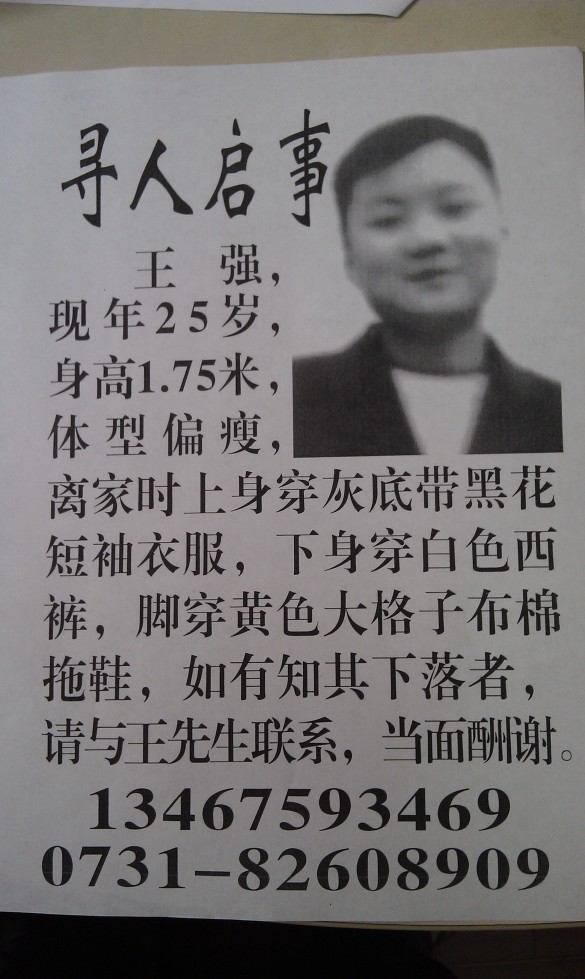 寻人启事
王强，
现年25岁，
身高1.75米，
体型偏瘦，
离家时上身穿灰底带黑花
短袖衣服，下身穿白色西
裤，脚穿黄色大格子布棉
拖鞋，如有知其下落者，
请与王先生联系，当面酬谢。
13467593469
0731-82608909